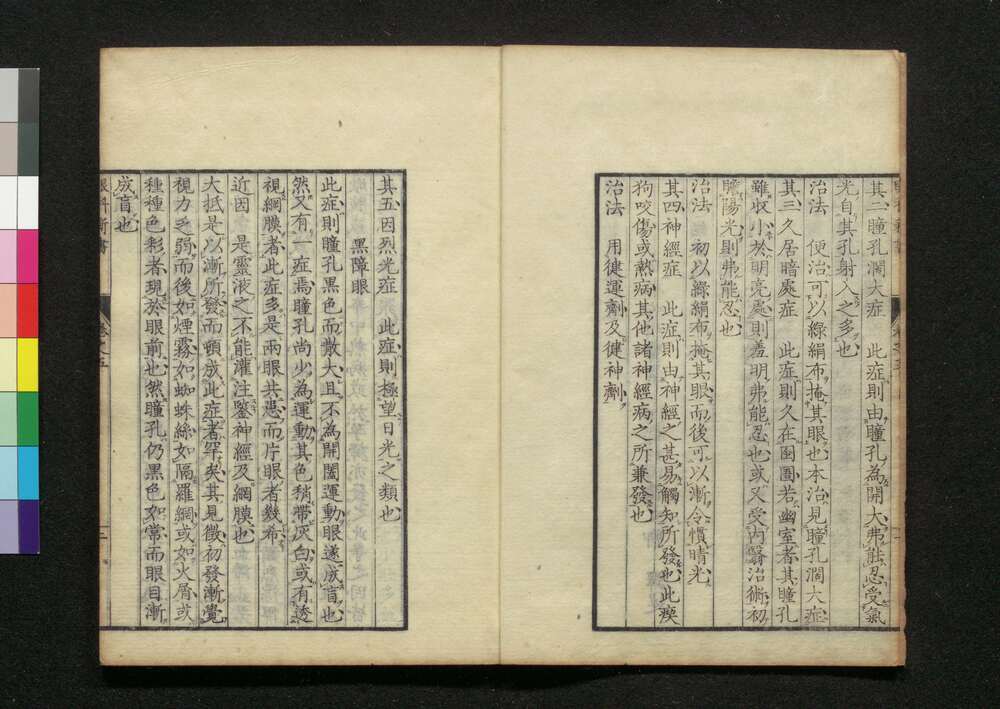 其二瞳孔濶大症　此症則由瞳孔為開大弗能忍受氣
光自其孔射入之多也
治法　便治可以綠絹布掩其眼也本治見瞳孔濶大症
其三久居暗處症　此症則久在囹圄若幽室者其瞳孔
雖收小於明亮處則羞明弗能忍也或又受內翳治術初
瞻陽光則弗能忍也
治法　初以綠絹布掩其眼而後可以漸令慣晴光
其四神經症　此症則由神經之甚易觸知所發也此疾
狗咬傷或熱病其他諸神經病之所兼發也
治法　用健運劑及健神劑
其五因烈光症　此症則極望日光之類也
黑障眼
此症則瞳孔黑色而散大且不為開闔運動眼遂成盲也
然又有一症焉瞳孔尚少為運動其色稍帶灰白或有透
視網膜者此症多是兩眼共患而片眼者幾希
近因　是靈液之不能灌注鑒神經及網膜也
大抵是以漸所發而頓成此症者罕矣其見徵初發漸覺
視力乏弱而後如煙霧如蜘蛛絲如隔羅網或如火屑或
種種色彩者現於眼前也然瞳孔仍黑色如常而眼目漸
成盲也
眼科新書　卷之五